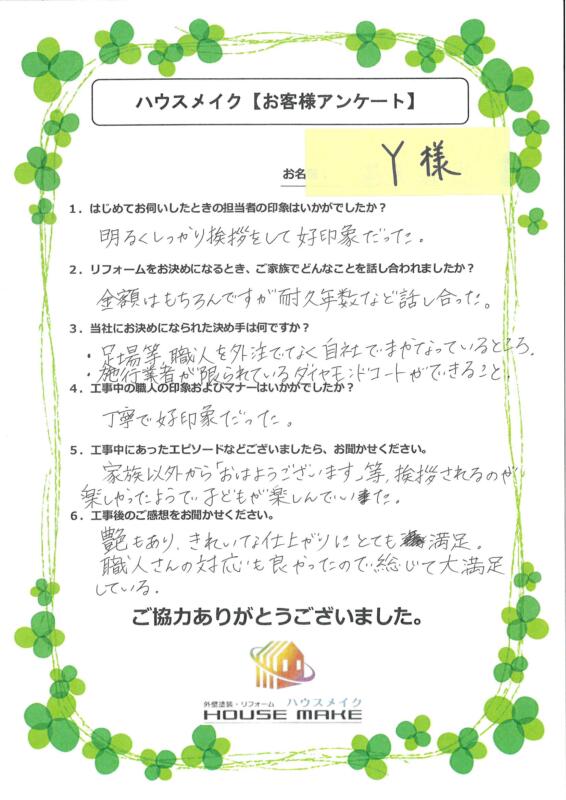 ハウスメイク【お客様アンケート】
お名
Y様
1．はじめてお伺いしたときの担当者の印象はいかがでしたか？
明るくしっかり挨拶をして好印象だった。
2．リフォームをお決めになるとき、ご家族でどんなことを話し合われましたか？
金額はもちろんですが耐久年数など話し合った。
3．当社にお決めになられた決め手は何ですか？
・足場等、職人を外注でなく自社でまかなっているところ。
・施行業者が限られているダイヤモンドコートができること。
4．工事中の職人の印象およびマナーはいかがでしたか？
丁寧で好印象だった。
5．工事中にあったエピソードなどございましたら、お聞かせください。
家族以外から「おはようございます」等、挨拶されるのが
楽しかったようで子どもが楽しんでいた。
6．工事後のご感想をお聞かせください。
艶もあり、きれいな仕上がりにとても満足。
職人さんの対応も良かったので総じて大満足
している。
ご協力ありがとうございました。
外壁塗装・リフォーム ハウスメイク
HOUSE MAKE